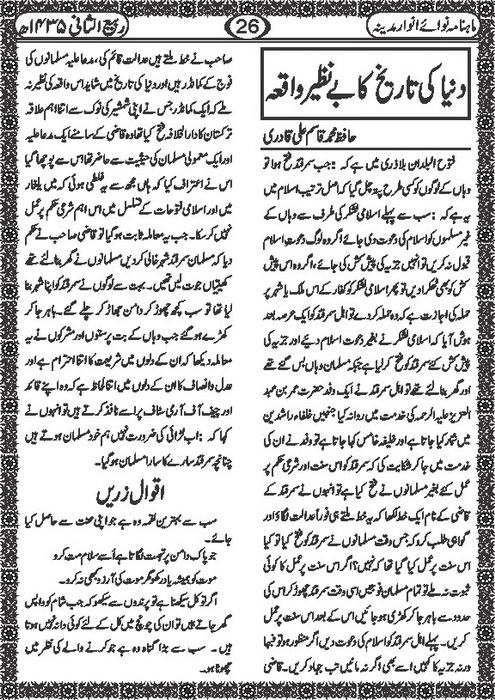 ماہنامہ نوائے انوار مدینہ
26
ربیع الثانی ۱۴۳۵ھ
دنیا کی تاریخ کا بے نظیر واقعہ
حافظ محمد قاسم علی قادری
فتوح البلدان بلاذری میں ہے کہ : جب سمرقند فتح ہوا تو
وہاں کے لوگوں کو کسی طرح پتہ چل گیا کہ اصل ترتیب اسلام میں
یہ ہے کہ : سب سے پہلے اسلامی لشکر کی طرف سے وہاں کے
غیر مسلموں کو اسلام کی دعوت دی جائے اگر وہ لوگ دعوت اسلام
قبول نہ کریں تو انہیں جزیہ کی پیش کش کی جائے، اگر وہ اس پیش
کش کو بھی ٹھکرا دیں تو پھر اسلامی لشکر کو کفار کے اس ملک یا شہر پر
حملہ کی اجازت ہے کہ وہ حملہ کردے تو اہل سمرقند کو ایک عرصہ بعد
ہوش آیا کہ اسلامی لشکر نے بغیر دعوت اسلام دیئے اور جزیہ کی
پیش کش کئے سمرقند کو فتح کرلیا ہے جبکہ مسلمان وہاں بس گئے تھے
اور گھر بنالئے تھے تو اہل سمرقند نے ایک وفد حضرت عمر بن عبد
العزیز علیہ الرحمہ کی خدمت میں روانہ کیا جنہیں خلفاء راشدین
میں شمار کیا جاتا ہے اور خلیفہ خامس کہا جاتا ہے وفد نے ان کی
خدمت میں جا کر شکایت کی کہ سمرقند کو اس سنت اور شرعی حکم پر
عمل کئے بغیر مسلمانوں نے فتح کیا ہے تو انہوں نے سمرقند کے
قاضی کے نام ایک خط لکھا کہ یہ خط ملتے ہی فوراً عدالت لگاؤ اور
گواہی طلب کرو کہ جس وقت مسلمانوں نے سمرقند کو فتح کیا تو کیا
اس سنت پر عمل کیا گیا تھا کہ نہیں؟ اگر اس سنت پر عمل کا کوئی
ثبوت نہ ملے تو تمام مسلمان فوجیں اسی وقت سمرقند چھوڑ کر اس کی
حدود سے باہر جا کر کھڑی ہو جائیں اس کے بعد اس سنت پر عمل
کریں۔ پہلے اہل سمرقند کو اسلام کی دعوت دیں اگر منظور ہو تو فبہا
ورنہ جزیہ کا کہیں اسے بھی اگر نہ مانیں تب جہاد کریں۔ قاضی
صاحب نے خط ملتے ہیں عدالت قائم کی، مدعا علیہ مسلمانوں کی
فوج کے کمانڈر ہیں اور دنیا کی تاریخ میں شاید اس واقعہ کی نظیر نہ
ملے کہ ایک کمانڈر جس نے اپنی شمشیر کی نوک سے اتنا اہم علاقہ
ترکستان کا دارالخلافہ فتح کیا تھا وہ قاضی کے سامنے ایک مدعا علیہ
اور ایک معمولی مسلمان کی حیثیت سے حاضر تھا اس سے پوچھا گیا
اس نے اعتراف کیا کہ ہاں مجھ سے یہ غلطی ہوئی کہ میں یلغار
میں اور اسلامی فتوحات کے تسلسل میں اس اہم شرعی حکم پر عمل
نہیں کرسکا۔ جب یہ معاملہ ثابت ہو گیا تو قاضی صاحب نے حکم
دیا کہ مسلمان سمرقند شہر خالی کردیں مسلمانوں نے گھر بنالئے تھے
کھیتیاں جوت لیں تھیں۔ بہت سے لوگوں نے سمرقند کو اپنا شہر بنا
لیا تھا تو سب کچھ چھوڑ کر دامن جھاڑ کر چلے گئے۔ باہر جا کر
کھڑے ہو گئے جب وہاں کے بت پرستوں اور مشرکوں نے یہ
معاملہ دیکھا کہ ان کے دلوں میں شریعت کا اتنا احترام ہے اور
عدل وانصاف کا ان کے دلوں میں اتنا لحاظ ہے کہ وہ اپنے قائد
اور چیف آف آرمی سٹاف پر اسے نافذ کرتے ہیں تو انہوں نے
کہا کہ : اب لڑائی کی ضرورت نہیں ہم خود مسلمان ہوتے ہیں
چنانچہ سمرقند سارے کا سارا مسلمان ہو گیا۔
اقوال زریں
سب سے بہترین لقمہ وہ ہے جو اپنی محنت سے حاصل کیا
جائے۔
جو پاک دامن پر تہمت لگاتا ہے اُسے سلام مت کرو
موت کو ہمیشہ یاد رکھو مگر موت کی آرزو بھی نہ کرو۔
اگر توکل سیکھنا ہے تو پرندوں سے سیکھو کہ جب شام کو واپس
گھر جاتے ہیں تو ان کی چونچ میں کل کے لئے کوئی دانہ نہیں ہوتا
ہیں۔ سب سے بڑا گناہ وہ ہے جو کرنے والے کی نظر میں
چھوٹا ہو۔